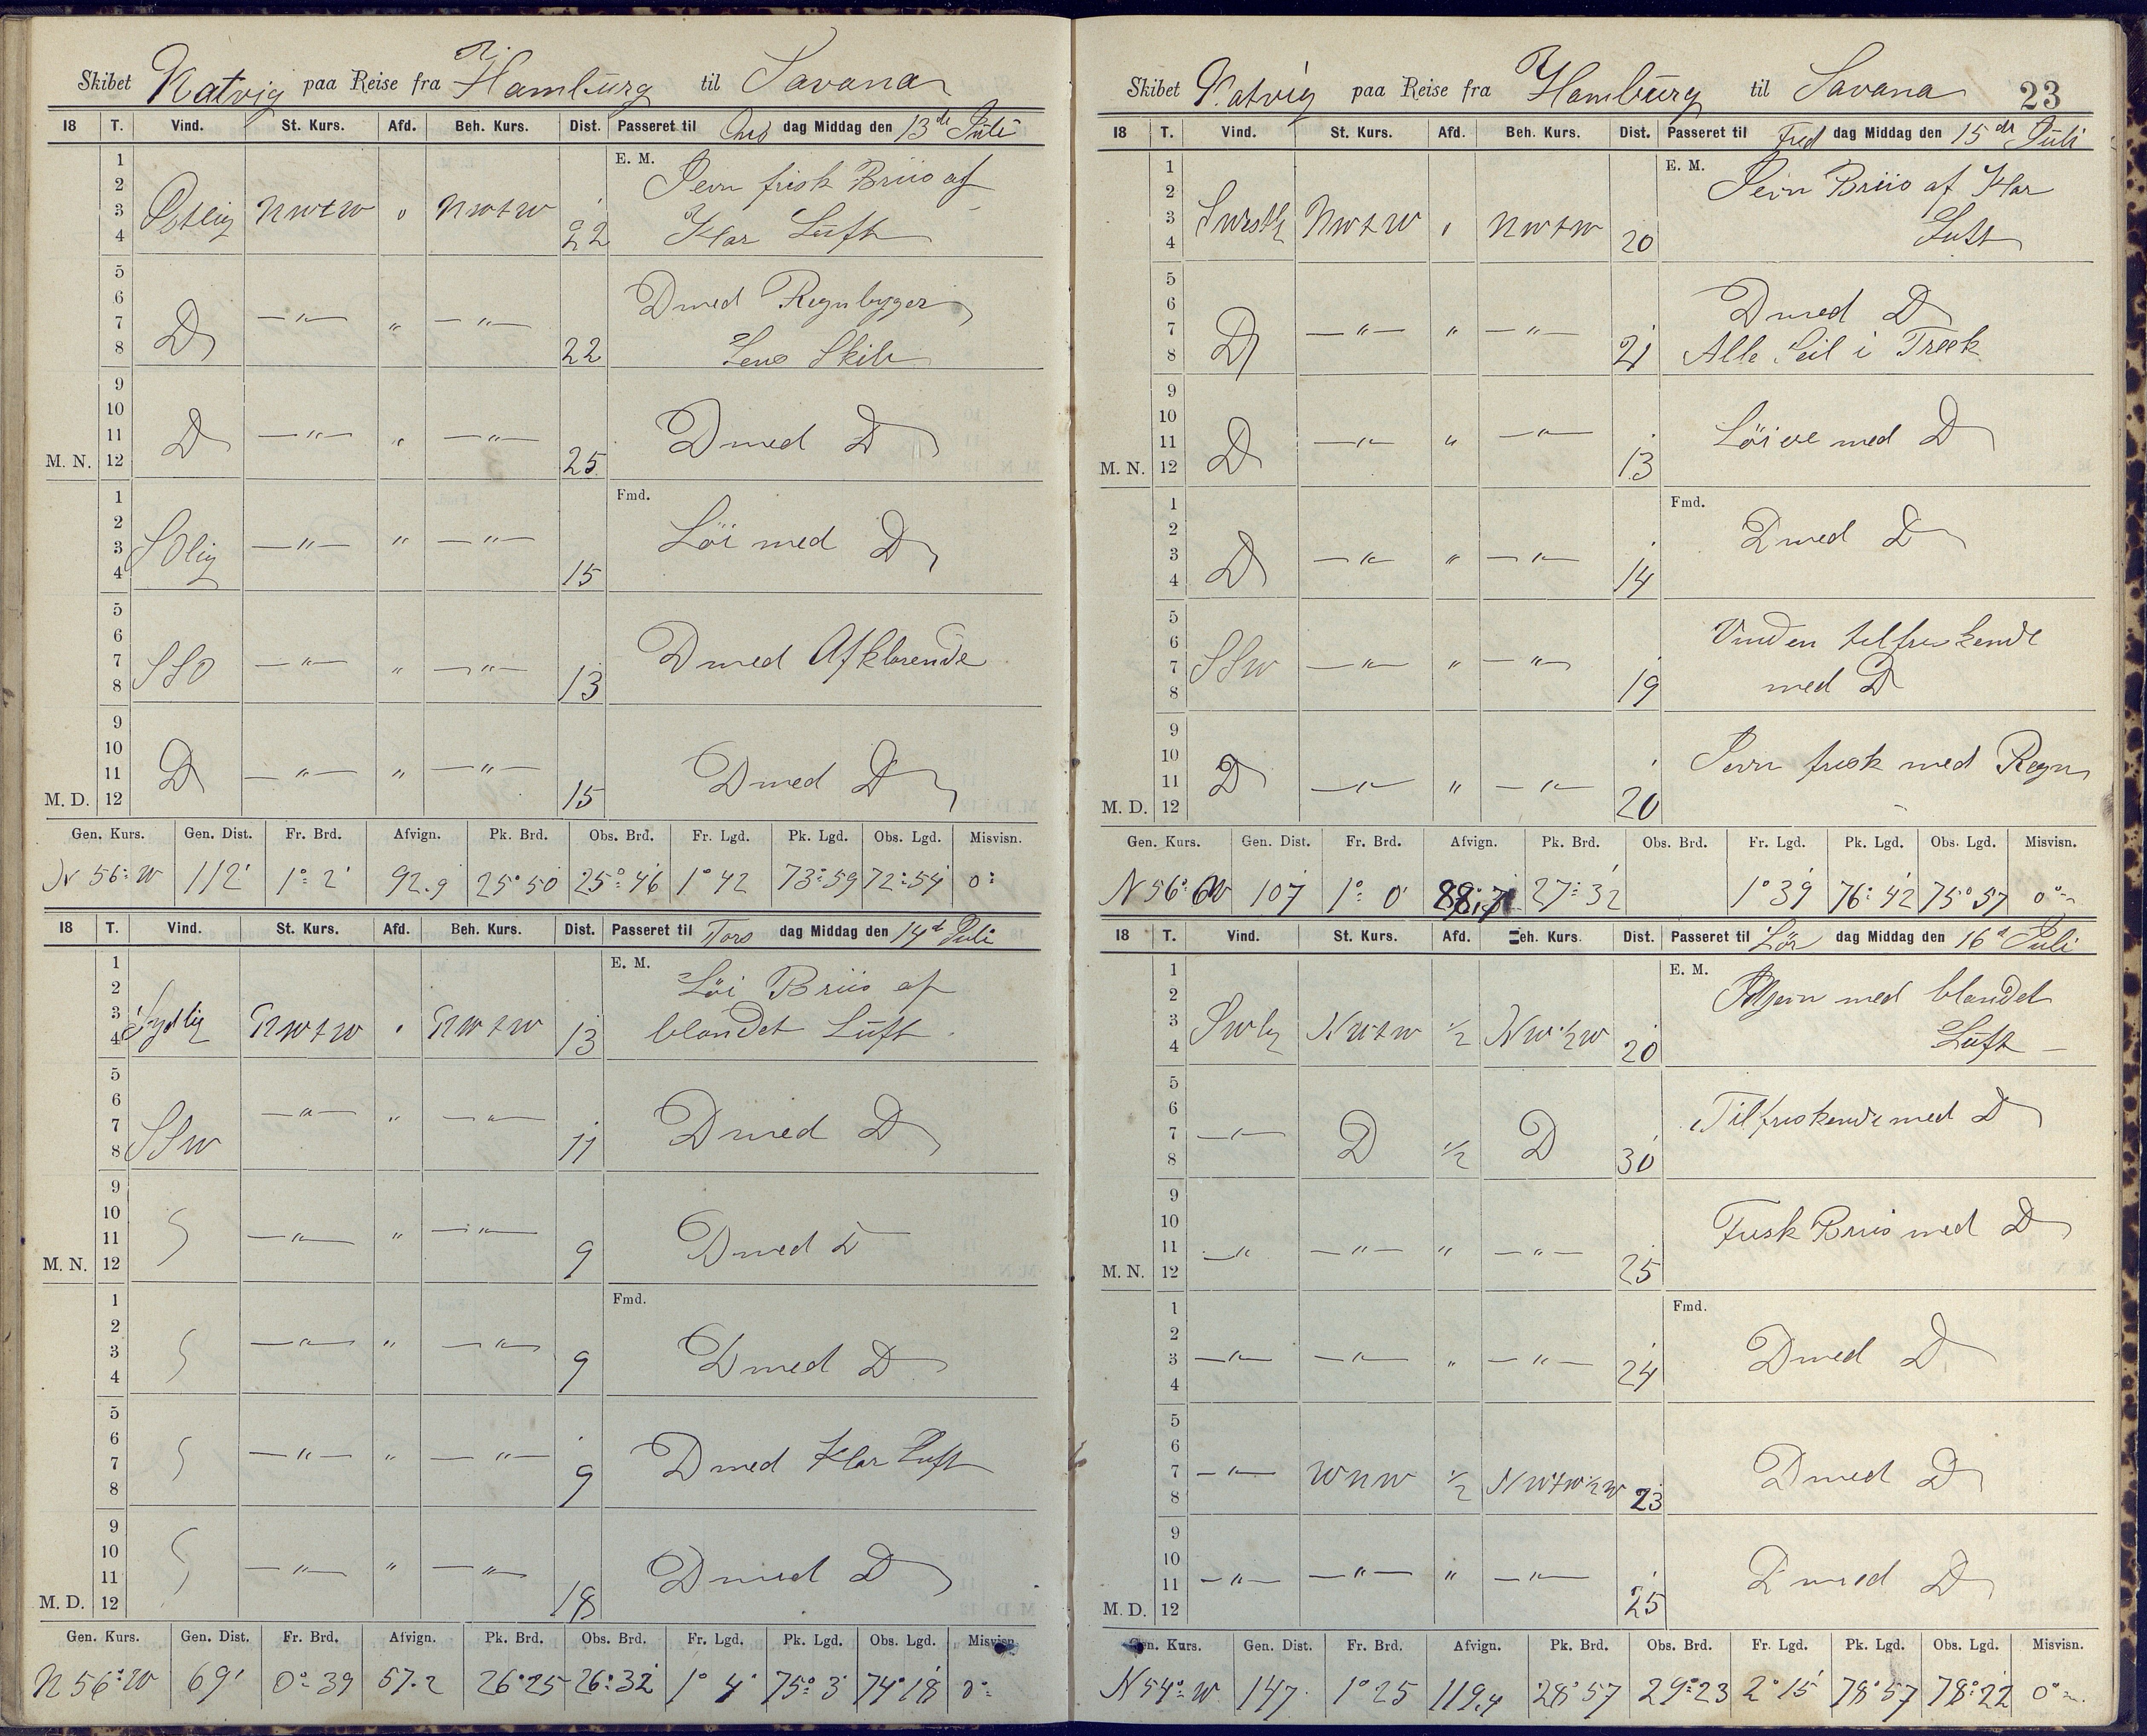 Skibet Natvig paa Reise fra Hamburg til Savana
18 T. Vind. St. Kurs. Afd. Beh. Kurs. Dist. Passeret til Ons dag Middag den 13de Juli
E. M.
1
2 Jevn frisk Briis af
3 Ostlig NWtW " NWtW 22
4 Klar Luft
5
6 D med Regnbyger
7 D —"— " —"— 22
8 Lens Skib
9
10
11 D —"— " —"— 25 D med D
M. N. 12
Fmd.
1
2
3 SOlig —"— " —"— 15 Löi med D
4
5
6
7 SSO —"— " —"— 13 D med Afklarende
8
9
10
11 D —"— " —"— 15 D med D
M. D. 12
Gen. Kurs. Gen. Dist. Fr. Brd. Afvign. Pk. Brd. Obs. Brd. Fr. Lgd. Pk. Lgd. Obs. Lgd. Misvisn.
N 56° W 112' 1° 2' 92.9 25° 50 25° 46 1° 42 73° 59 72° 54 0°
18 T. Vind. St. Kurs. Afd. Beh. Kurs. Dist. Passeret til Tors dag Middag den 14d Juli
E. M.
1
2 Löi Briis af
3 Sydlig NWtW " NWtW 13 blandet Luft
4
5
6
7 SSW —"— " —"— 11 D med D
8
9
10
11 S —"— " —"— 9 D med D
M. N. 12
Fmd.
1
2
3 S —"— " —"— 9 D med D
4
5
6
7 S —"— " —"— 9 D med Klar Luft
8
9
10
11 S —"— " —"— 18 D med D
M. D. 12
Gen. Kurs. Gen. Dist. Fr. Brd. Afvign. Pk. Brd. Obs. Brd. Fr. Lgd. Pk. Lgd. Obs. Lgd. Misvisn.
N 56° W 69' 0° 39 57.2 26° 25 26° 32 1° 4' 75° 3' 74° 18 0°
Skibet Natvig paa Reise fra Hamburg til Savana 23
18 T. Vind. St. Kurs. Afd. Beh. Kurs. Dist. Passeret til Fred dag Middag den 15de Juli
E. M.
1
2 Jevn Briis af Klar
3 NWtW " NWtW 20
4 Luft
5
6 D med D
7 D —"— " —"— 21
8 Alle Seil i Træk
9
10
11 D —"— " —"— 13 Löiere med D
M. N. 12
Fmd.
1
2
3 D —"— " —"— 14 D med D
4
5
6 Vinden tilfriskende
7 SSW —"— " —"— 19
8 med D
9
10
11 D —"— " —"— 20 Jevn frisk med Regn
M. D. 12
Gen. Kurs. Gen. Dist. Fr. Brd. Afvign. Pk. Brd. Obs. Brd. Fr. Lgd. Pk. Lgd. Obs. Lgd. Misvisn.
N 56° W 107 1° 0' 88.7 27° 32 1° 39 76° 42 75° 57 0°
18 T. Vind. St. Kurs. Afd. Beh. Kurs. Dist. Passeret til Lör dag Middag den 16d Juli
E. M.
1
2 med blandet
3 SWly NWtW 1/2 NW 1/2 W 20
4 Luft
5
6 Tilfriskende med D
7 —"— D 1/2 D 30
8
9
10
11 —"— —"— " —"— 25 Frisk Briis med D
M. N. 12
Fmd.
1
2
3 —"— —"— " —"— 24 D med D
4
5
6
7 —"— WNW 1/2 NWtW 1/2 W 23 D med D
8
9
10
11 —"— —"— " —"— 25 D med D
M. D. 12
Gen. Kurs. Gen. Dist. Fr. Brd. Afvign. Pk. Brd. Obs. Brd. Fr. Lgd. Pk. Lgd. Obs. Lgd. Misvisn.
N 54° W 147 1° 25 119.4 28° 57 29° 23 2° 15 78° 57 78° 22 0°